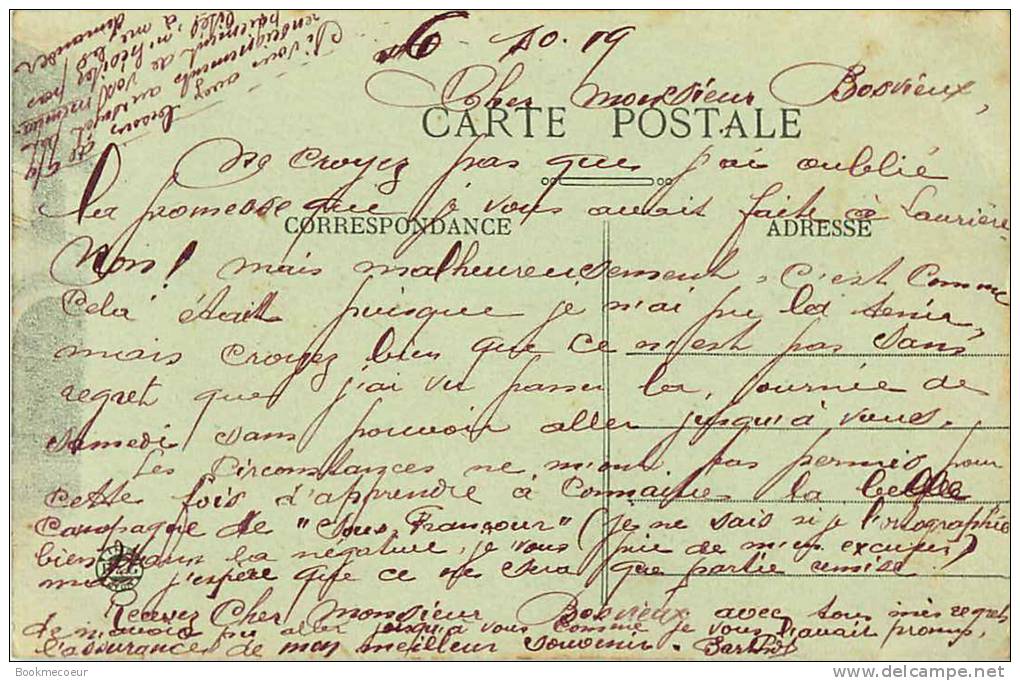 6 10.19
Cher Monsieur Bosvieux,
CARTE POSTALE
Ne croyez pas que j'ai oublié
la promesse que je vous avait faite à Laurière
CORRESPONDANCE
ADRESSE
Non! mais malheureusement, c'est comme
celà était puisque je n'ai pu la tenir,
mais croyez bien que ce n'est pas sans
regret que j'ai vu passer la journée de
samedi sans pouvoir aller jusqu'à vous.
Les circonstances ne m'ont pas permis pour
cette fois d'apprendre à connaitre la belle
campagne de "Françour" (je ne sais si je l'ortographie
bien dans la négative, je vous prie de m'en excuser)
mais j'espère que ce ne sera que partie remise.
Recevez Cher Monsieur Bosvieux avec tous mes regrets
de n'avoir pu aller jusqu'à vous comme je vous l'avait promis,
l'assurance de mon meilleur souvenir.
Si vous avez besoin de
renseignements au sujet du
paiement de vos
n'hésitez pas
à me les demander
Bookmecoeur
delcampe.net